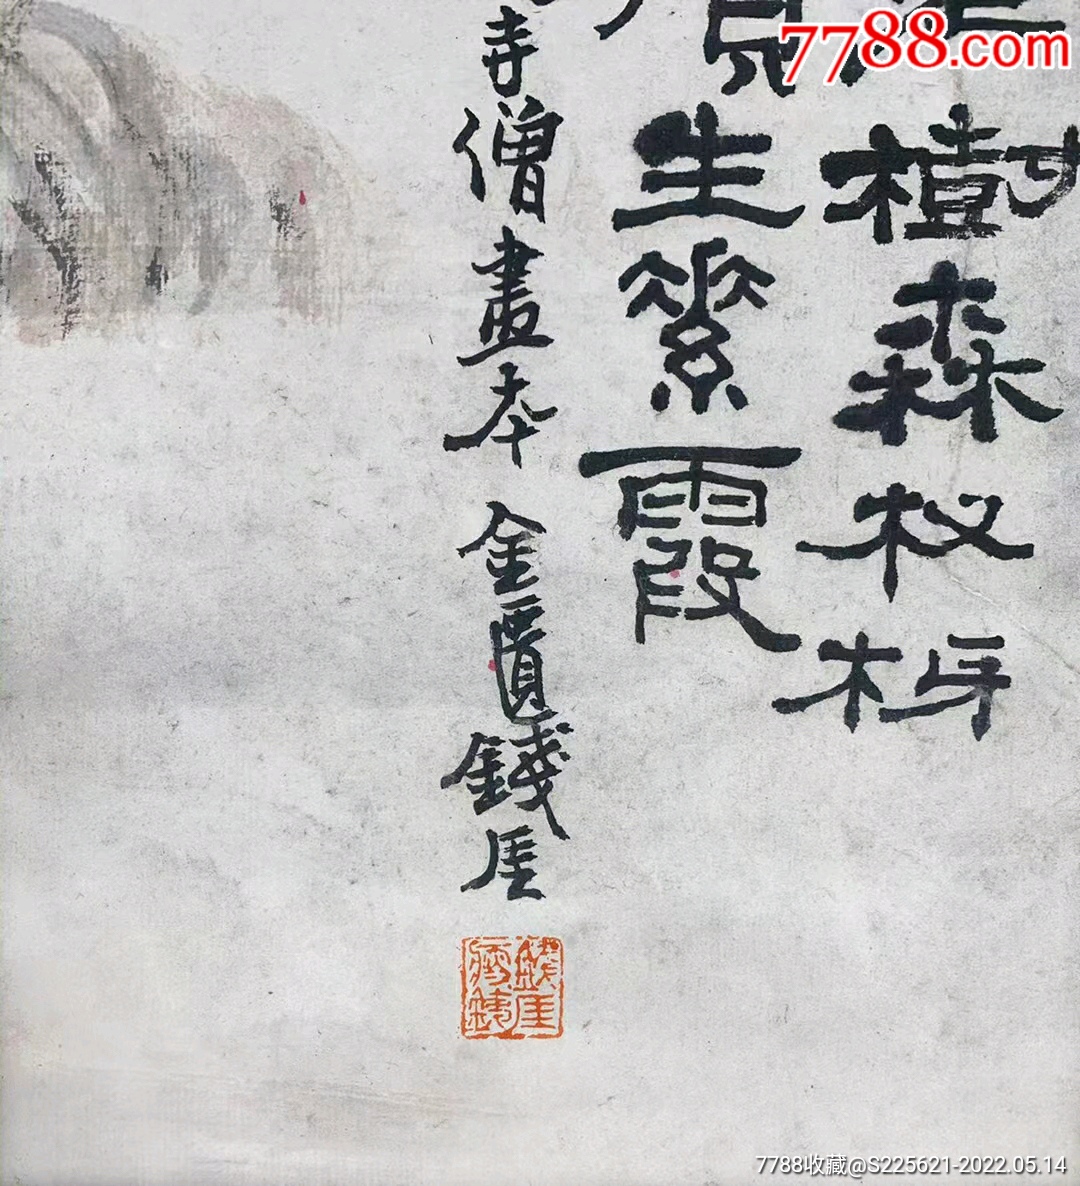 7788.com
樹森杈枒
生 霞
寺僧畫本 金匱錢厓
錢厓
瘦銕
7788收藏@S225621-2022.05.14